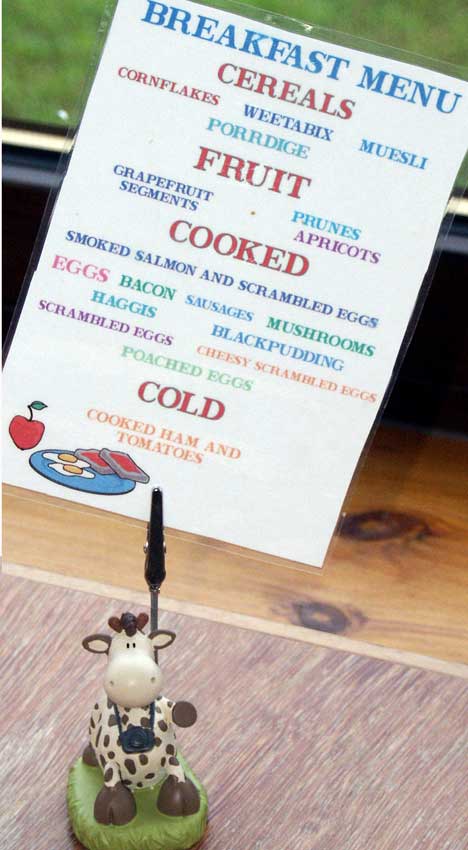 BREAKFAST MENU
CEREALS
CORNFLAKES WEETABIX
PORRDIGE MUESLI
FRUIT
GRAPEFRUIT SEGMENTS PRUNES
APRICOTS
COOKED
SMOKED SALMON AND SCRAMBLED EGGS
EGGS BACON SAUSAGES MUSHROOMS
HAGGIS BLACKPUDDING
SCRAMBLED EGGS CHEESY SCRAMBLED EGGS
POACHED EGGS
COLD
COOKED HAM AND
TOMATOES